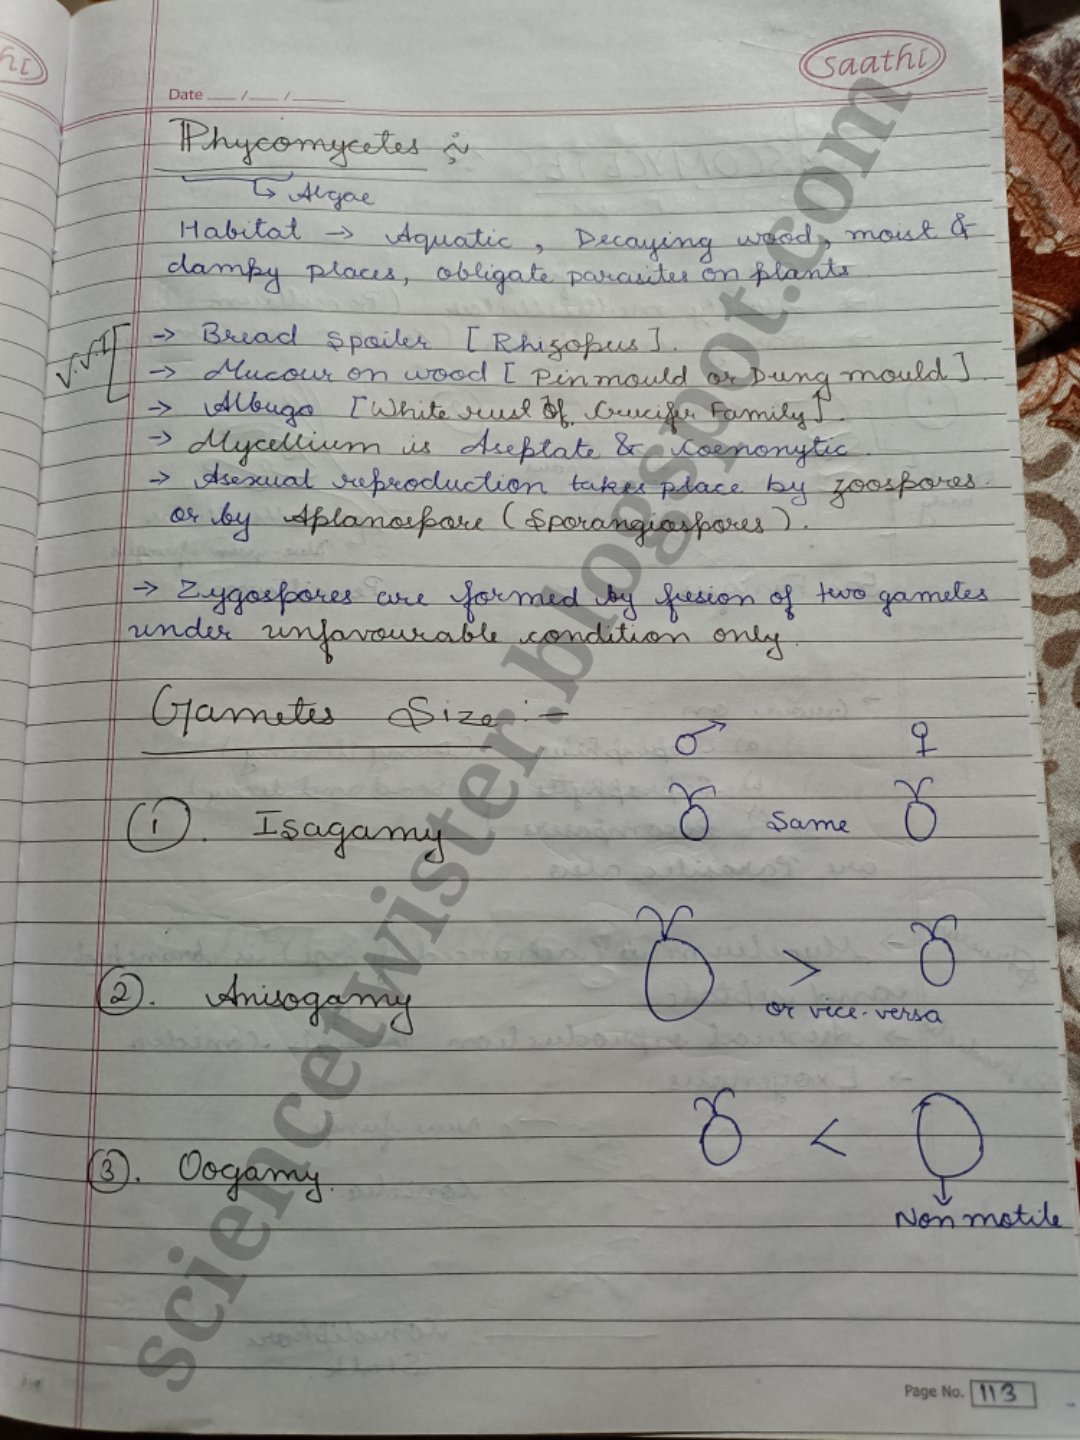 saathi
Date ___ / ___ / _____
Phycomycetes :~
↳ Algae
Habitat → Aquatic, Decaying wood, moist &
dampy places, obligate parasites on plants
V.V.I
→ Bread Spoiler [Rhizopus].
→ Mucour on wood [Pinmould or Dung mould].
→ Albugo [White rust of Crucifer Family].
→ Mycellium is Aseptate & Coenonytic.
→ Asexual reproduction takes place by zoospores.
or by Aplanospore (Sporangiospores).
→ Zygospores are formed by fusion of two gametes
under unfavourable condition only.
Gametes Size :-
♂ ♀
1. Isagamy Same
2. Anisogamy >
or vice-versa
3. Oogamy. <
Non motile
Page No. 113
sciencetwister.blogspot.com